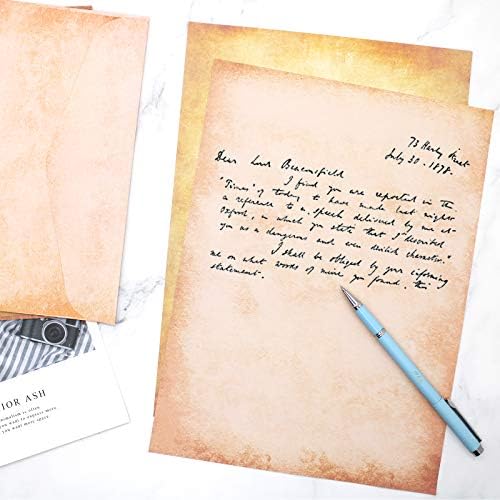 73 Harley Street
July 30. 1878.
Dear Lord Beaconsfield
I find you are reported in the
"Times" of today to have made last night
a reference to a speech delivered by me at
Oxford, in which you state that I described
you as a dangerous and even devilish character.
I shall be obliged by your informing
me on what words of mine you found this
statement.
IOR ASH
ormalism is often
you want to express more,
you want more space.